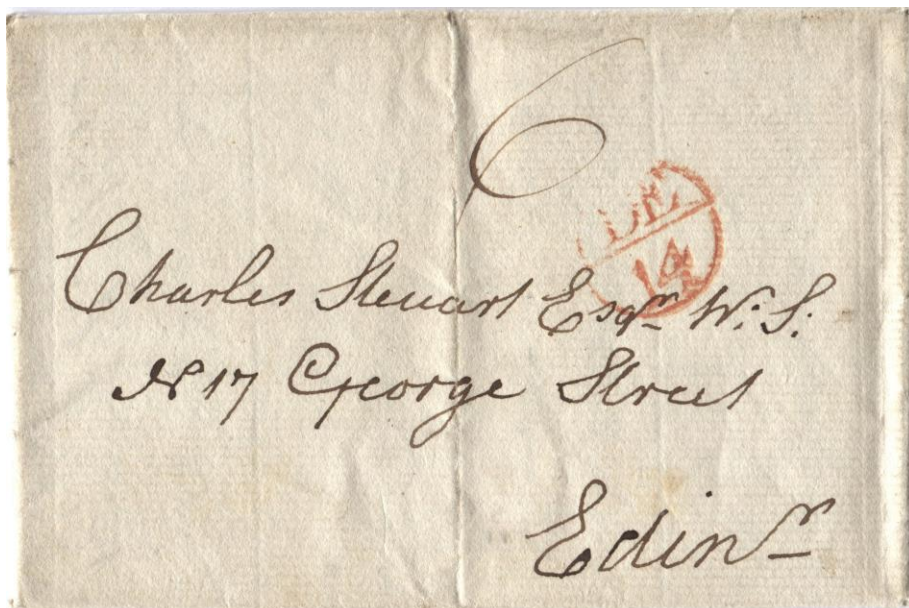 6
14
Charles Steuart Esqr. W: S:
No 17 George Street
Edinr